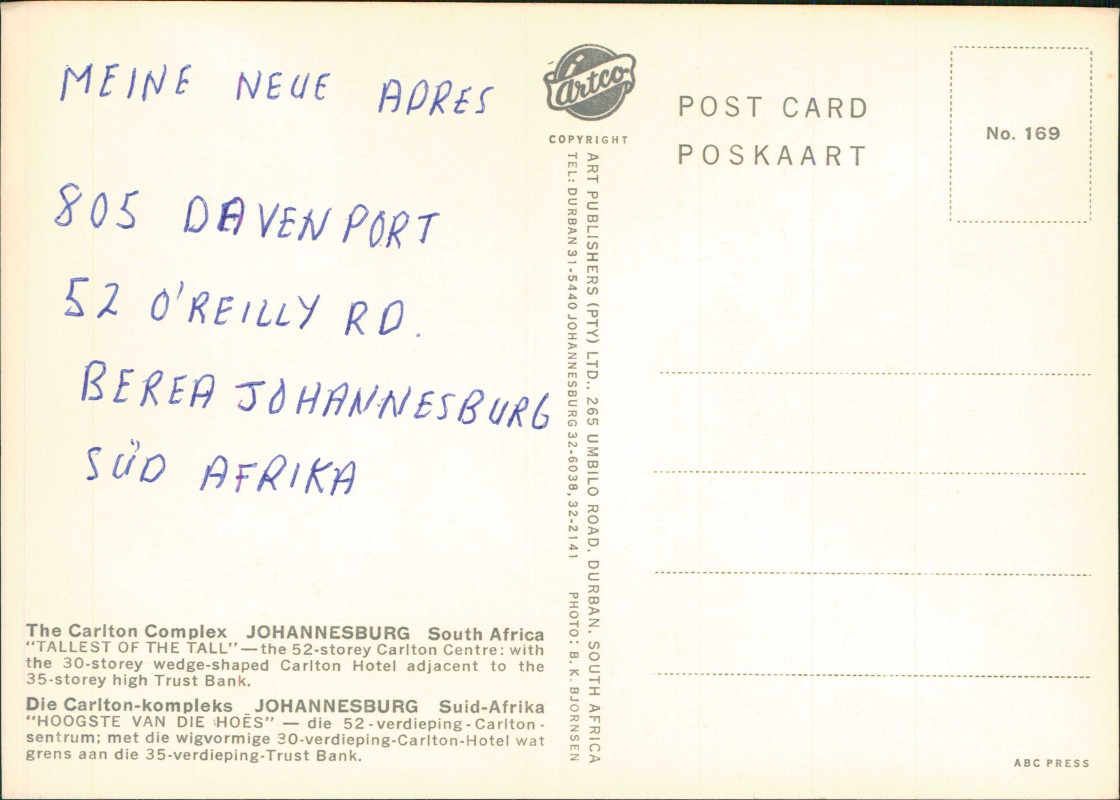 MEINE NEUE ADRES
805 DAVENPORT
52 O'REILLY RD.
BEREA JOHANNESBURG
SÜD AFRIKA
The Carlton Complex JOHANNESBURG South Africa
"TALLEST OF THE TALL"—the 52-storey Carlton Centre: with
the 30-storey wedge-shaped Carlton Hotel adjacent to the
35-storey high Trust Bank.
Die Carlton-kompleks JOHANNESBURG Suid-Afrika
"HOOGSTE VAN DIE HOËS" — die 52-verdieping-Carlton-
sentrum; met die wigvormige 30-verdieping-Carlton-Hotel wat
grens aan die 35-verdieping-Trust Bank.
Artco
COPYRIGHT
ART PUBLISHERS (PTY) LTD., 265 UMBILO ROAD, DURBAN. SOUTH AFRICA
TEL: DURBAN 31-5440 JOHANNESBURG 32-6038, 32-2141 PHOTO: B. K. BJORNSEN
POST CARD
POSKAART
No. 169
ABC PRESS